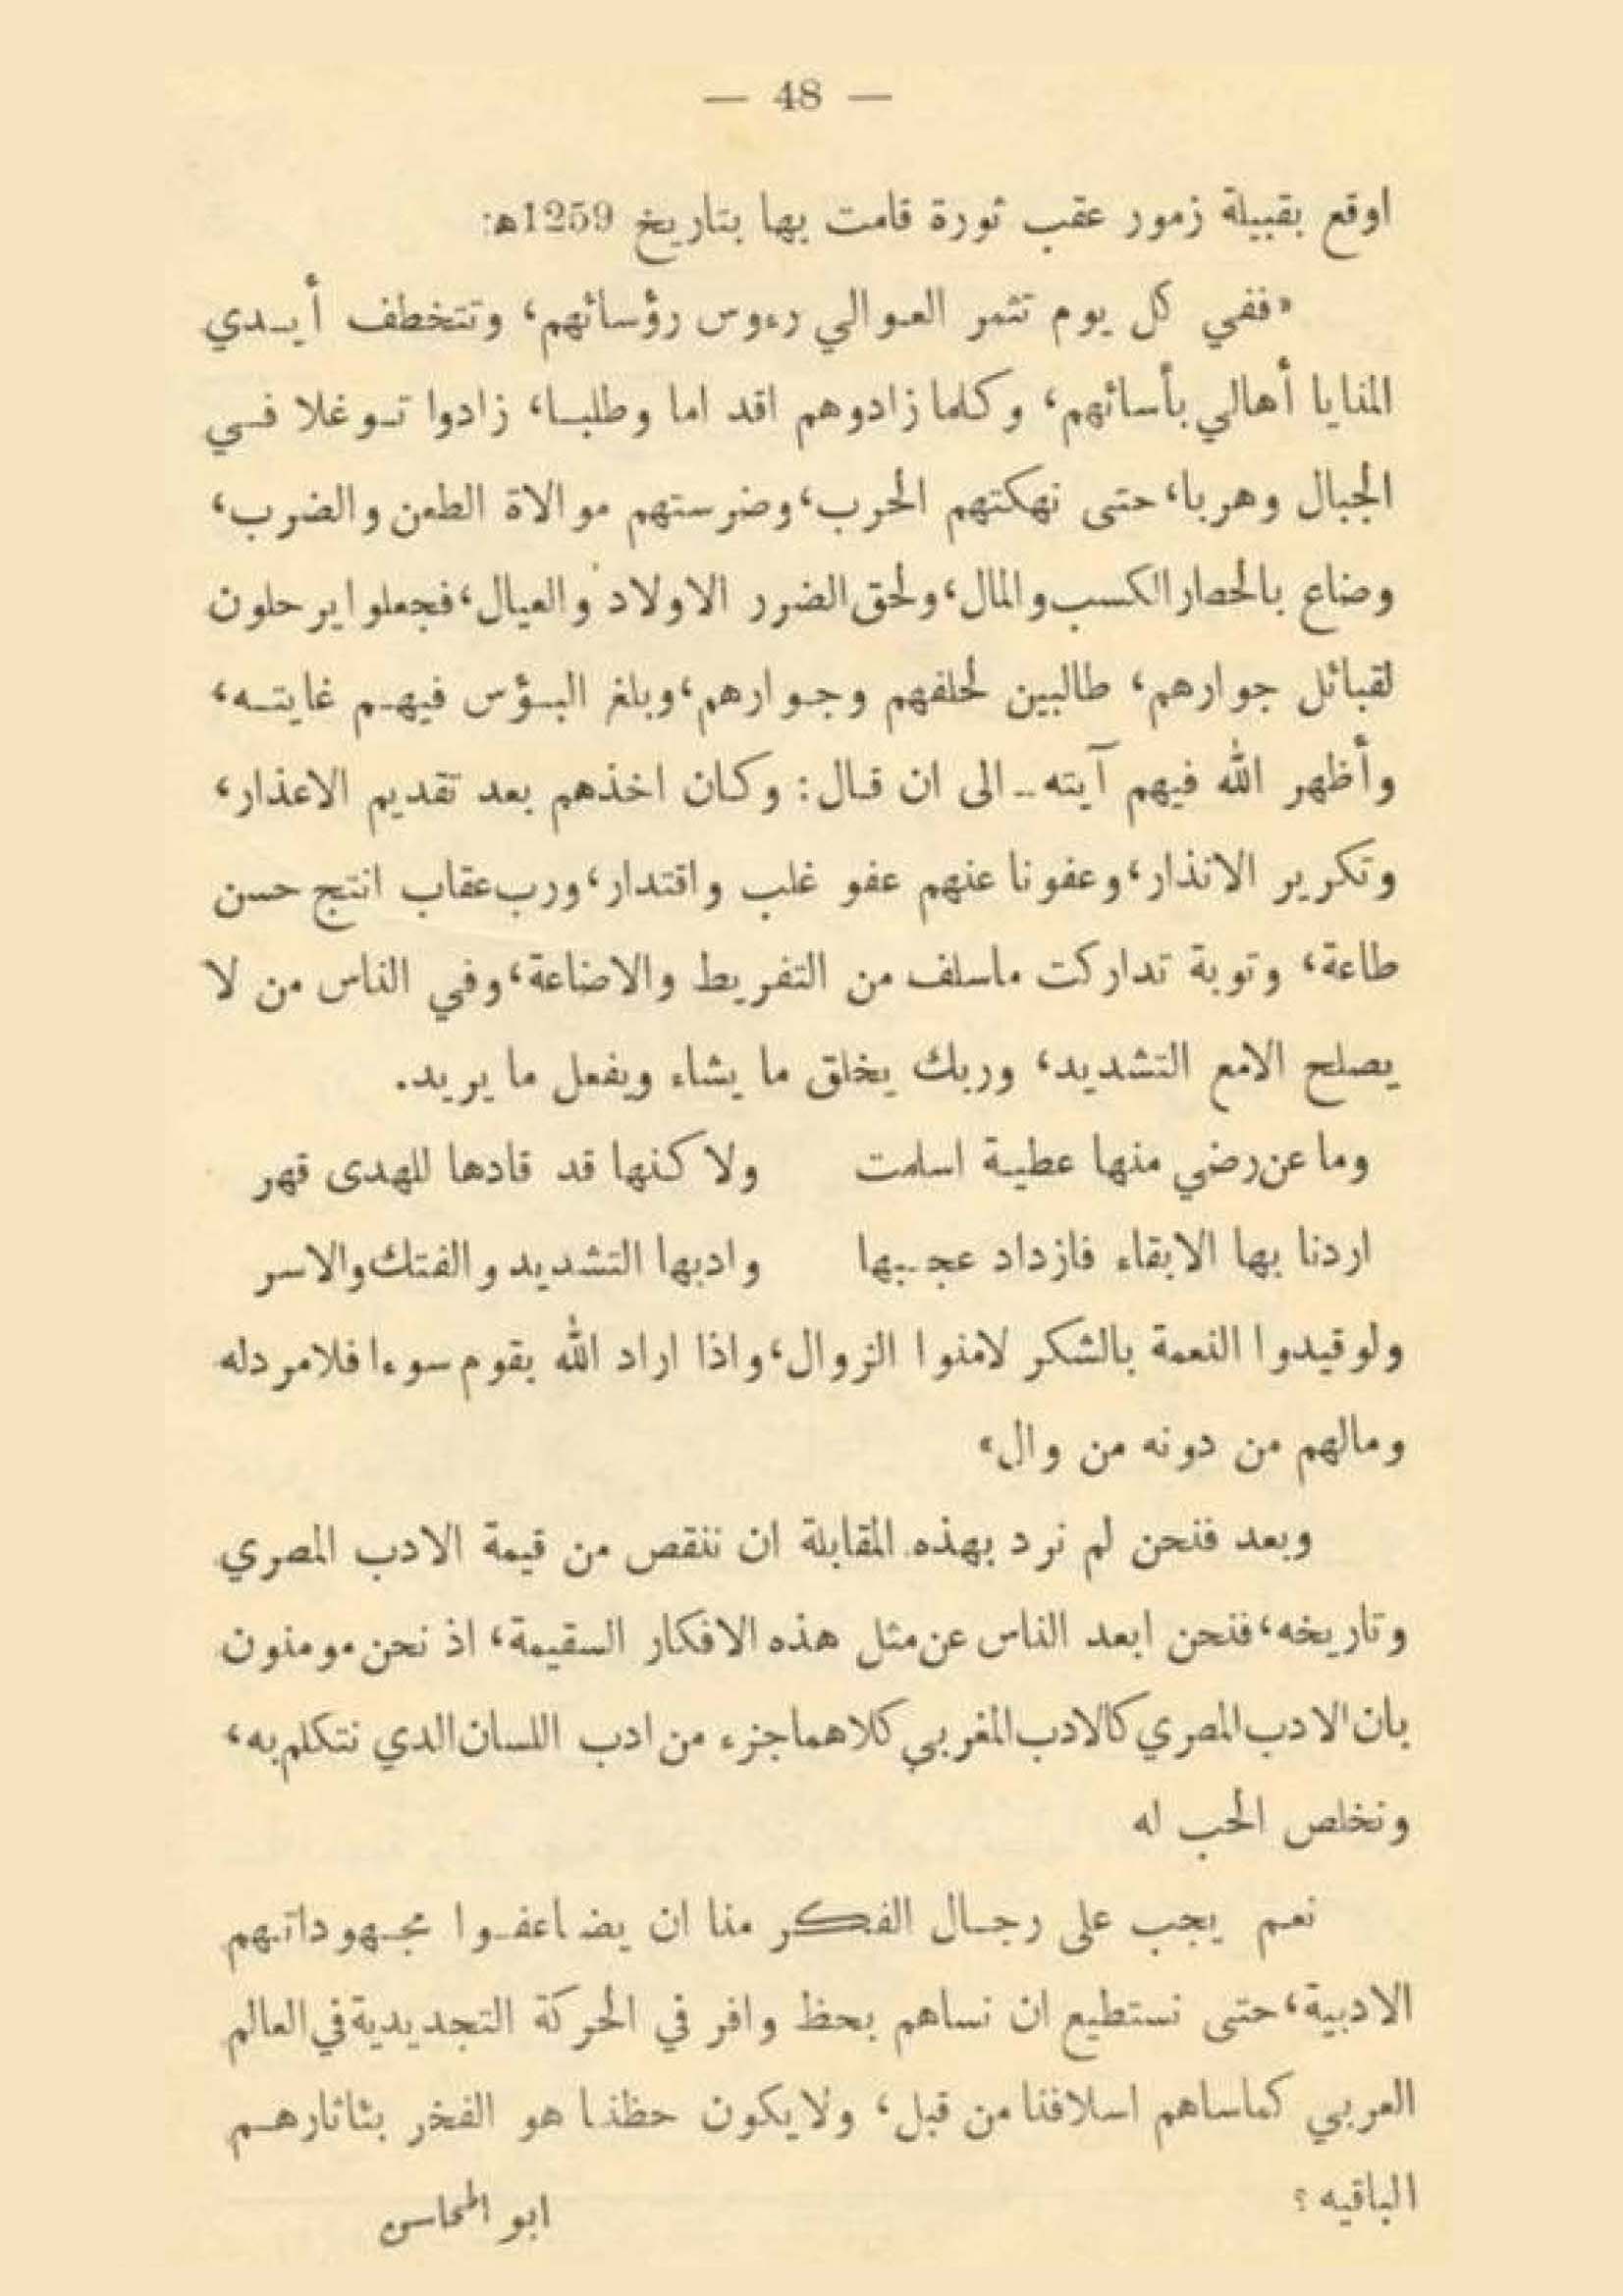 — 48 —
اوقع بقبيلة زمور عقب ثورة قامت بها بتاريخ 1259ه:
«ففي كل يوم تثمر العوالي رءوس رؤسائهم، وتتخطف أيدي
المنايا أهالي بأسائهم، وكلما زادوهم اقداما وطلبا، زادوا توغلا في
الجبال وهربا، حتى نهكتهم الحرب، وضرستهم موالاة الطعن والضرب،
وضاع بالحصار الكسب والمال، ولحق الضرر الاولاد والعيال، فجعلوا يرحلون
لقبائل جوارهم، طالبين لحلفهم وجوارهم، وبلغ البؤس فيهم غايته،
وأظهر الله فيهم آيته.. الى ان قال: وكان اخذهم بعد تقديم الاعذار،
وتكرير الانذار، وعفونا عنهم عفو غلب واقتدار، ورب عقاب انتج حسن
طاعة، وتوبة تداركت ماسلف من التفريط والاضاعة، وفي الناس من لا
يصلح الامع التشديد، وربك يخلق ما يشاء ويفعل ما يريد.
وما عن رضي منها عطية اسلمت ولاكنها قد قادها للهدى قهر
اردنا بها الابقاء فازداد عجبها وادبها التشديد والفتك والاسر
ولو قيدوا النعمة بالشكر لامنوا الزوال، واذا اراد الله بقوم سوءا فلامرد له
ومالهم من دونه من وال»
وبعد فنحن لم نرد بهذه المقابلة ان ننقص من قيمة الادب المصري
وتاريخه، فنحن ابعد الناس عن مثل هذه الافكار السقيمة، اذ نحن مومنون
بان الادب المصري كالادب المغربي كلاهما جزء من ادب اللسان الدي نتكلم به،
ونخلص الحب له
نعم يجب على رجال الفكر منا ان يضاعفوا مجهوداتهم
الادبية، حتى نستطيع ان نساهم بحظ وافر في الحركة التجديدية في العالم
العربي كماساهم اسلافنا من قبل، ولايكون حظنا هو الفخر بئاثارهم
الباقيه ؟
ابو المحاسن